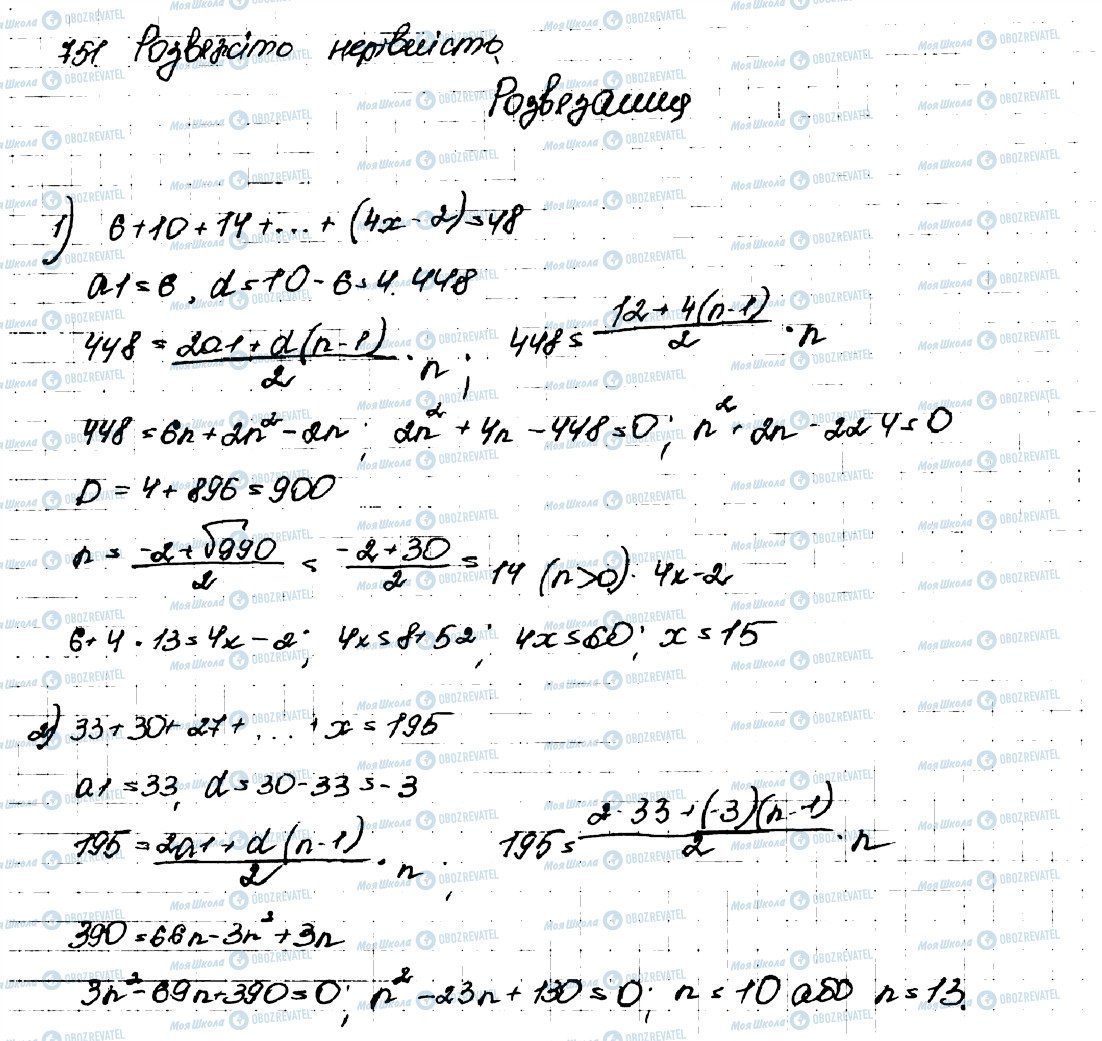 751 Розвяжіть нерівність
Розвязання
1) 6+10+14+...+(4x-2)=48
a1=6, d=10-6=4. 448
448 = \frac{2a1+d(n-1)}{2} \cdot n; 448 = \frac{12+4(n-1)}{2} \cdot n
448=6n+2n²-2n; 2n²+4n-448=0; n²+2n-224=0
D=4+896=900
n = \frac{-2+\sqrt{990}}{2} = \frac{-2+30}{2} = 14 (n>0). 4x-2
6+4·13=4x-2; 4x=8+52; 4x=60; x=15
2) 33+30+27+...+x=195
a1=33, d=30-33=-3
195 = \frac{2a1+d(n-1)}{2} \cdot n; 195 = \frac{2·33+(-3)(n-1)}{2} \cdot n
390=66n-3n²+3n
3n²-69n+390=0; n²-23n+130=0; n=10 або n=13.